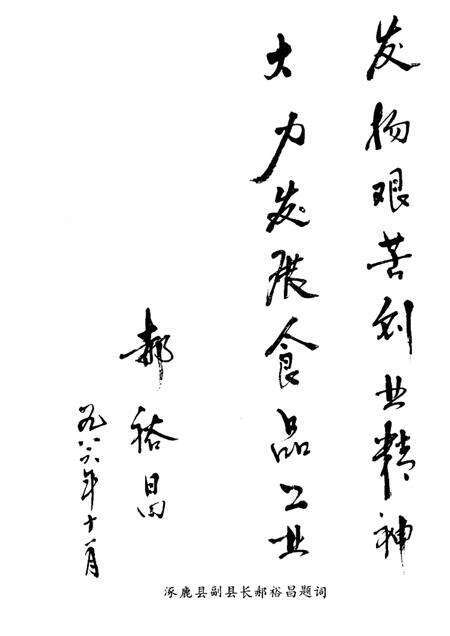 发扬艰苦创业精神
大力发展食品工业
郝裕昌
一九八六年十一月
涿鹿县副县长郝裕昌题词